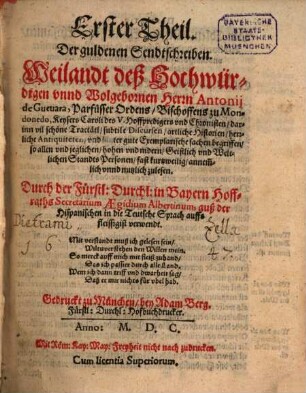 Erster Theil.
Der guldenen Sendtschreiben.
Weilandt deß Hochwür-
digen vnnd Wolgebornen Herrn Antonij
de Gueuara, Parfüsser Ordens, Bischoffens zu Mon-
donedo, Keysers Caroli des V. Hoffpredigers vnd Chronisten, dar-
inn vil schöne Tractätl, subtile Discursen, artliche Historien, herz-
liche Antiquiteten, vnd lauter gute Exemplarische sachen begriffen,
so allen vnd jeglichen, hohen vnd nidern, Geistlich vnd Welt-
lichen Standts Personen, fast kurtzweilig, annemb-
lich vnnd nutzlich zulesen.
Durch der Fürstl: Durchl: in Bayern Hoff-
raths Secretarium Ægidium Albertinum, auß der
Hispanischen in die Teutsche Sprach auffs
fleissigist verwendt.
Mit verstandt muß ich gelesen sein,
So merck auff mich mit fleiß zuhand,
Das ich passier durch alle Land,
Gedruckt zu München, bey Adam Berg,
Fürstl: Durchl: Hofbuchdrucker.
Anno: M. D. C.
Mit Röm: Kay: May: Freyheit nicht nach zudrucken.
Cum licentia Superiorum.
BAYERISCHE
STAATS-
BIBLIOTHEK
MUENCHEN